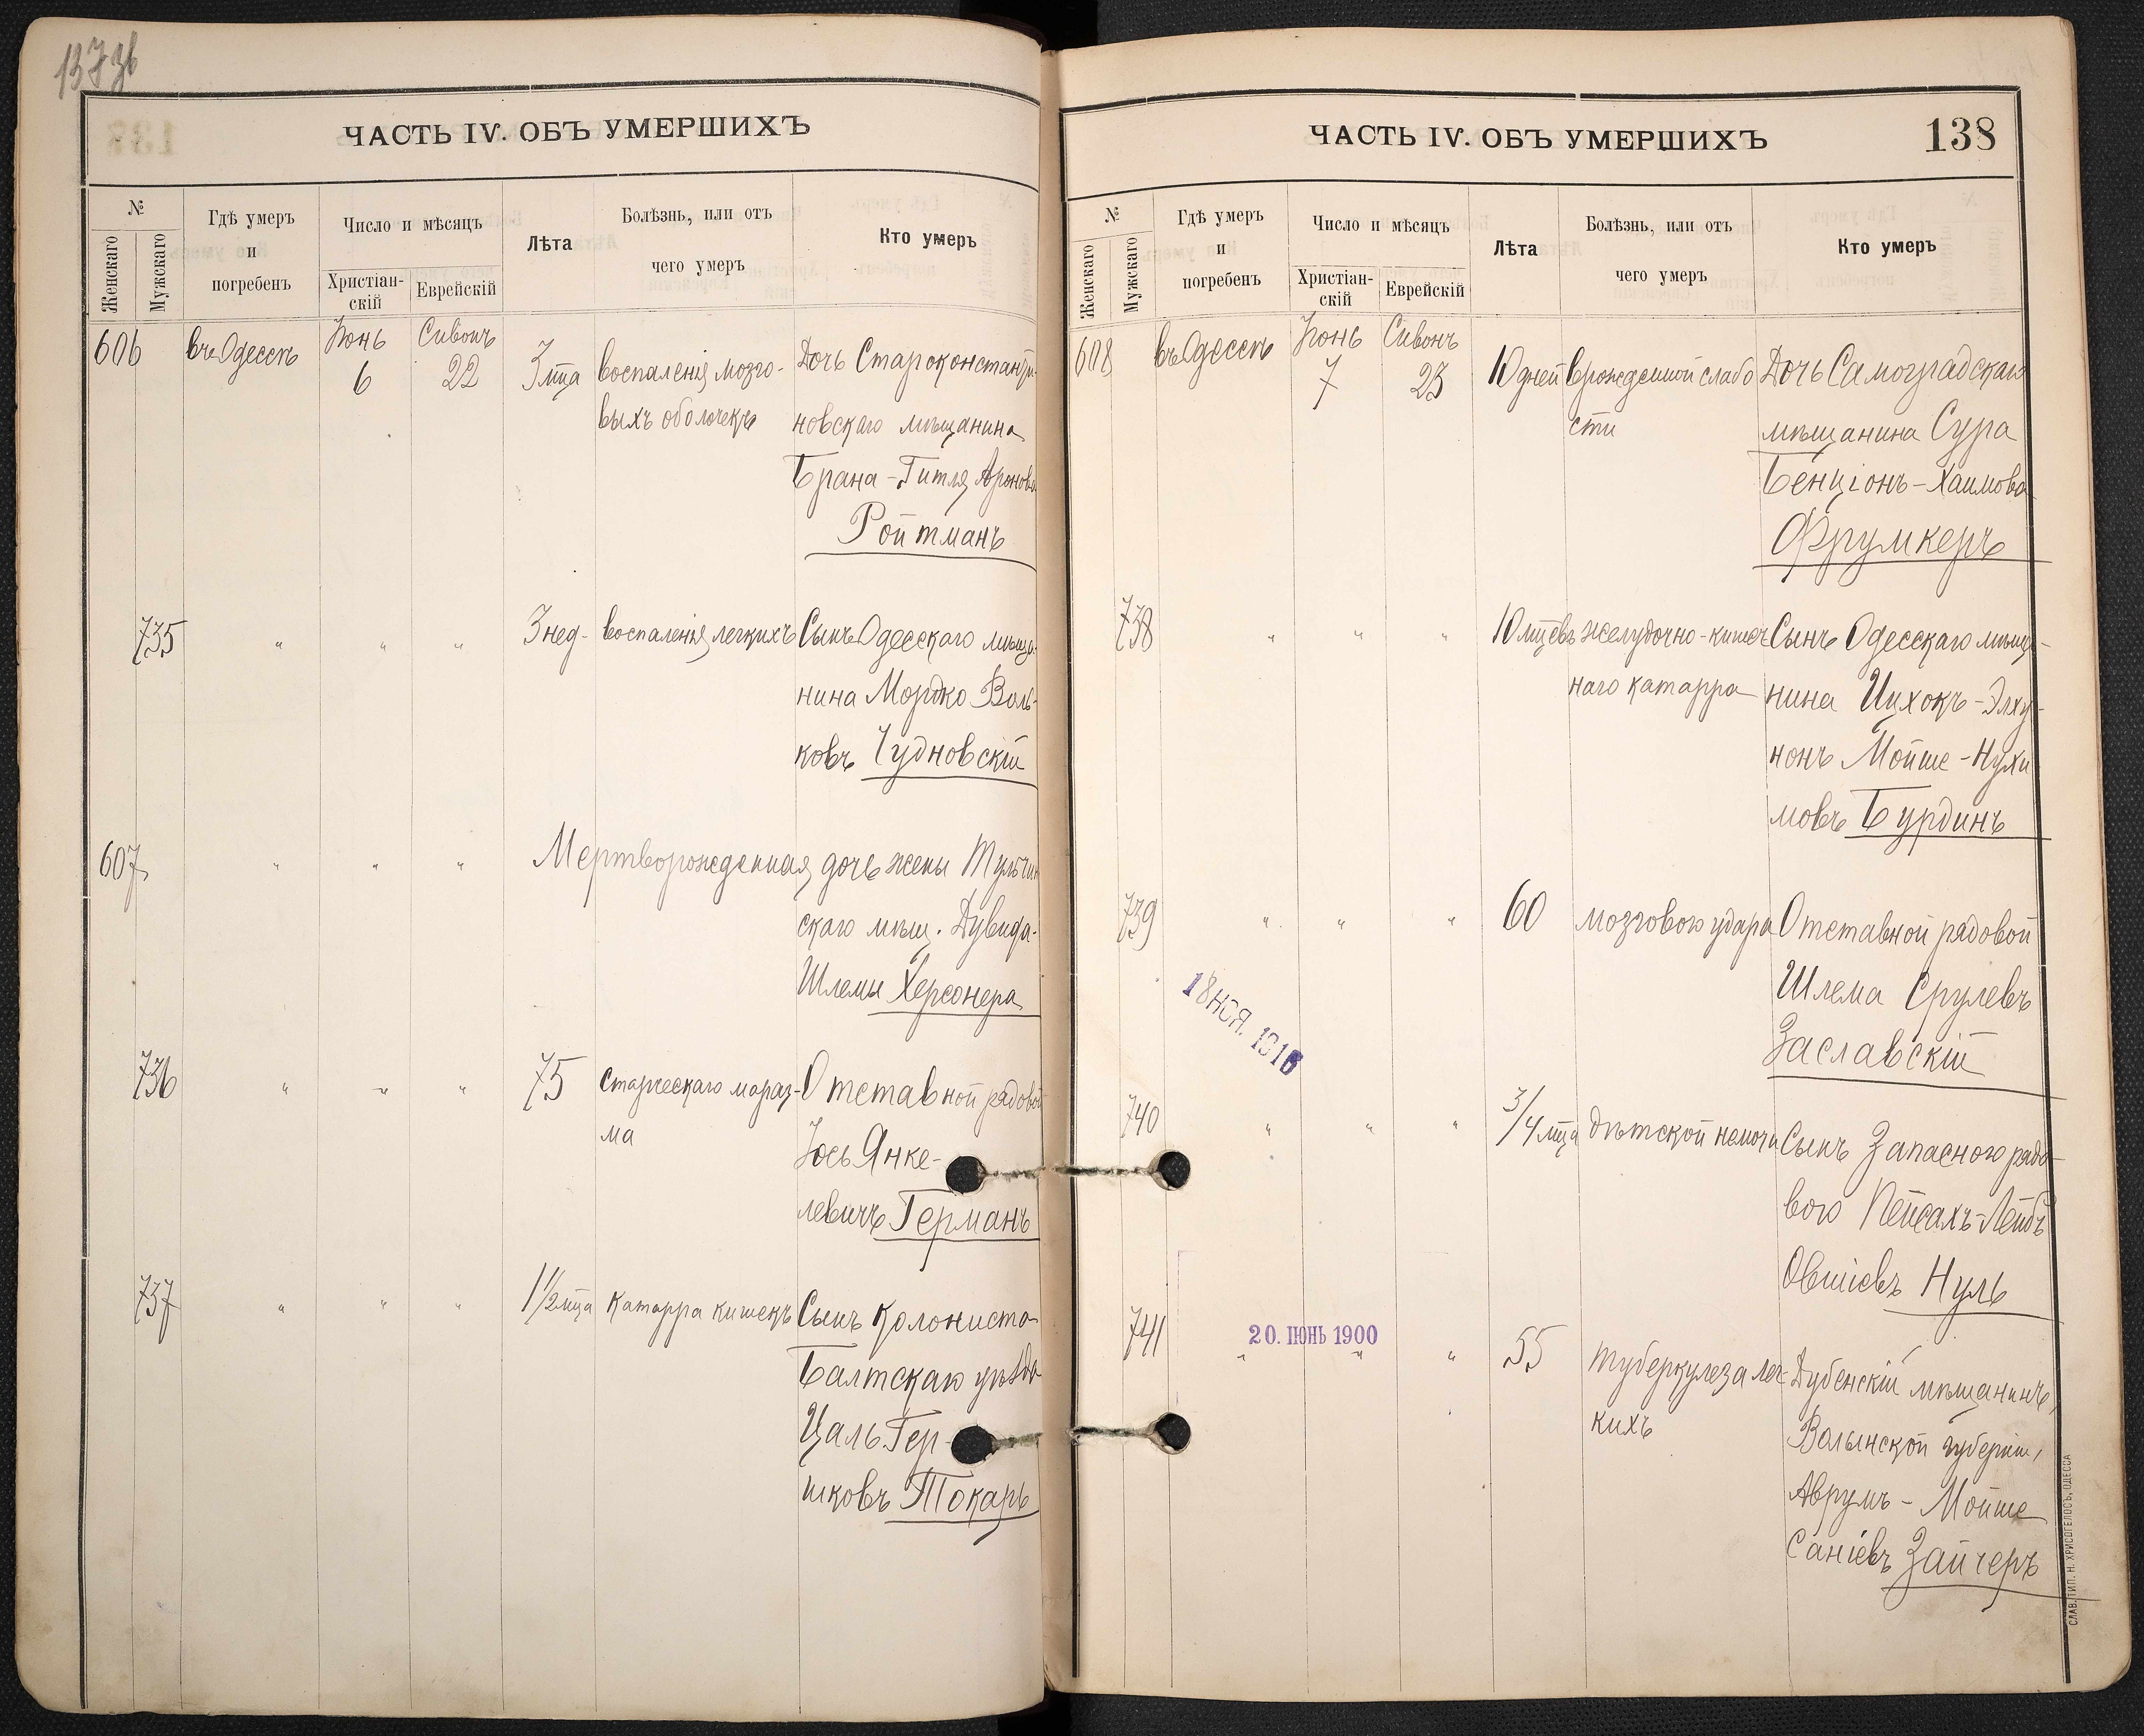 137 зв
ЧАСТЬ IV. ОБЪ УМЕРШИХЪ
№
Женскаго
Мужскаго
Гдѣ умеръ
и
погребенъ
Число и мѣсяцъ
Христіан-
скій
Еврейскій
Лѣта
Болѣзнь, или отъ
чего умеръ
Кто умеръ
606 въ Одессѣ Іюнь 6 Сивонъ 22 3 мца воспаленія мозго- Дочь Староконстанти-
выхъ оболочекъ новскаго мѣщанина
Брана-Гитля Аронова
Ройтманъ
735 " " " 3 нед- воспаленія легкихъ Сынъ Одесскаго мѣща-
нина Мордко Воль-
ковъ Чудновскій
607 " " " Мертворожденная дочь жены Тульчин
скаго мѣщ. Дувида-
Шлемы Херсонера
736 " " " 75 старческаго мараз- Отставной рядовой
ма Іось Янке-
левичъ Германъ
737 " " " 1 1/2 мца катарра кишекъ Сынъ колониста
Балтскаго уѣзда
Цаль Гер-
шковъ Токарь
ЧАСТЬ IV. ОБЪ УМЕРШИХЪ
138
№
Женскаго
Мужскаго
Гдѣ умеръ
и
погребенъ
Число и мѣсяцъ
Христіан-
скій
Еврейскій
Лѣта
Болѣзнь, или отъ
чего умеръ
Кто умеръ
608 въ Одессѣ Іюнь 7 Сивонъ 23 10 дней врожденной слабо Дочь Самоградскаго
сти мѣщанина Сура
Бенціонъ-Хаимова
Фрумкеръ
738 " " " 10 мцевъ желудочно-кишеч Сынъ Одесскаго мѣща-
наго катарра нина Ицхокъ-Элху-
нонъ Мойше-Нухи
мовъ Бурдинъ
739 " " " 60 мозгового удара Отставной рядовой
Шлема Срулевъ
Заславскій
18 НОЯ. 1916
740 " " " 3/4 мца дѣтской немочи Сынъ Запасного рядо-
вого Пейсахъ-Лейбъ
Овшіевъ Нуль
20. ІЮНЬ 1900
741 " " " 55 туберкулеза лег- Дубенскій мѣщанинъ,
кихъ Волынской губерніи,
Аврумъ-Мойше
Саніевъ Зайчеръ
СЛАВ. ТИП. Н. ХРИСОГЕЛОСЪ, ОДЕССА